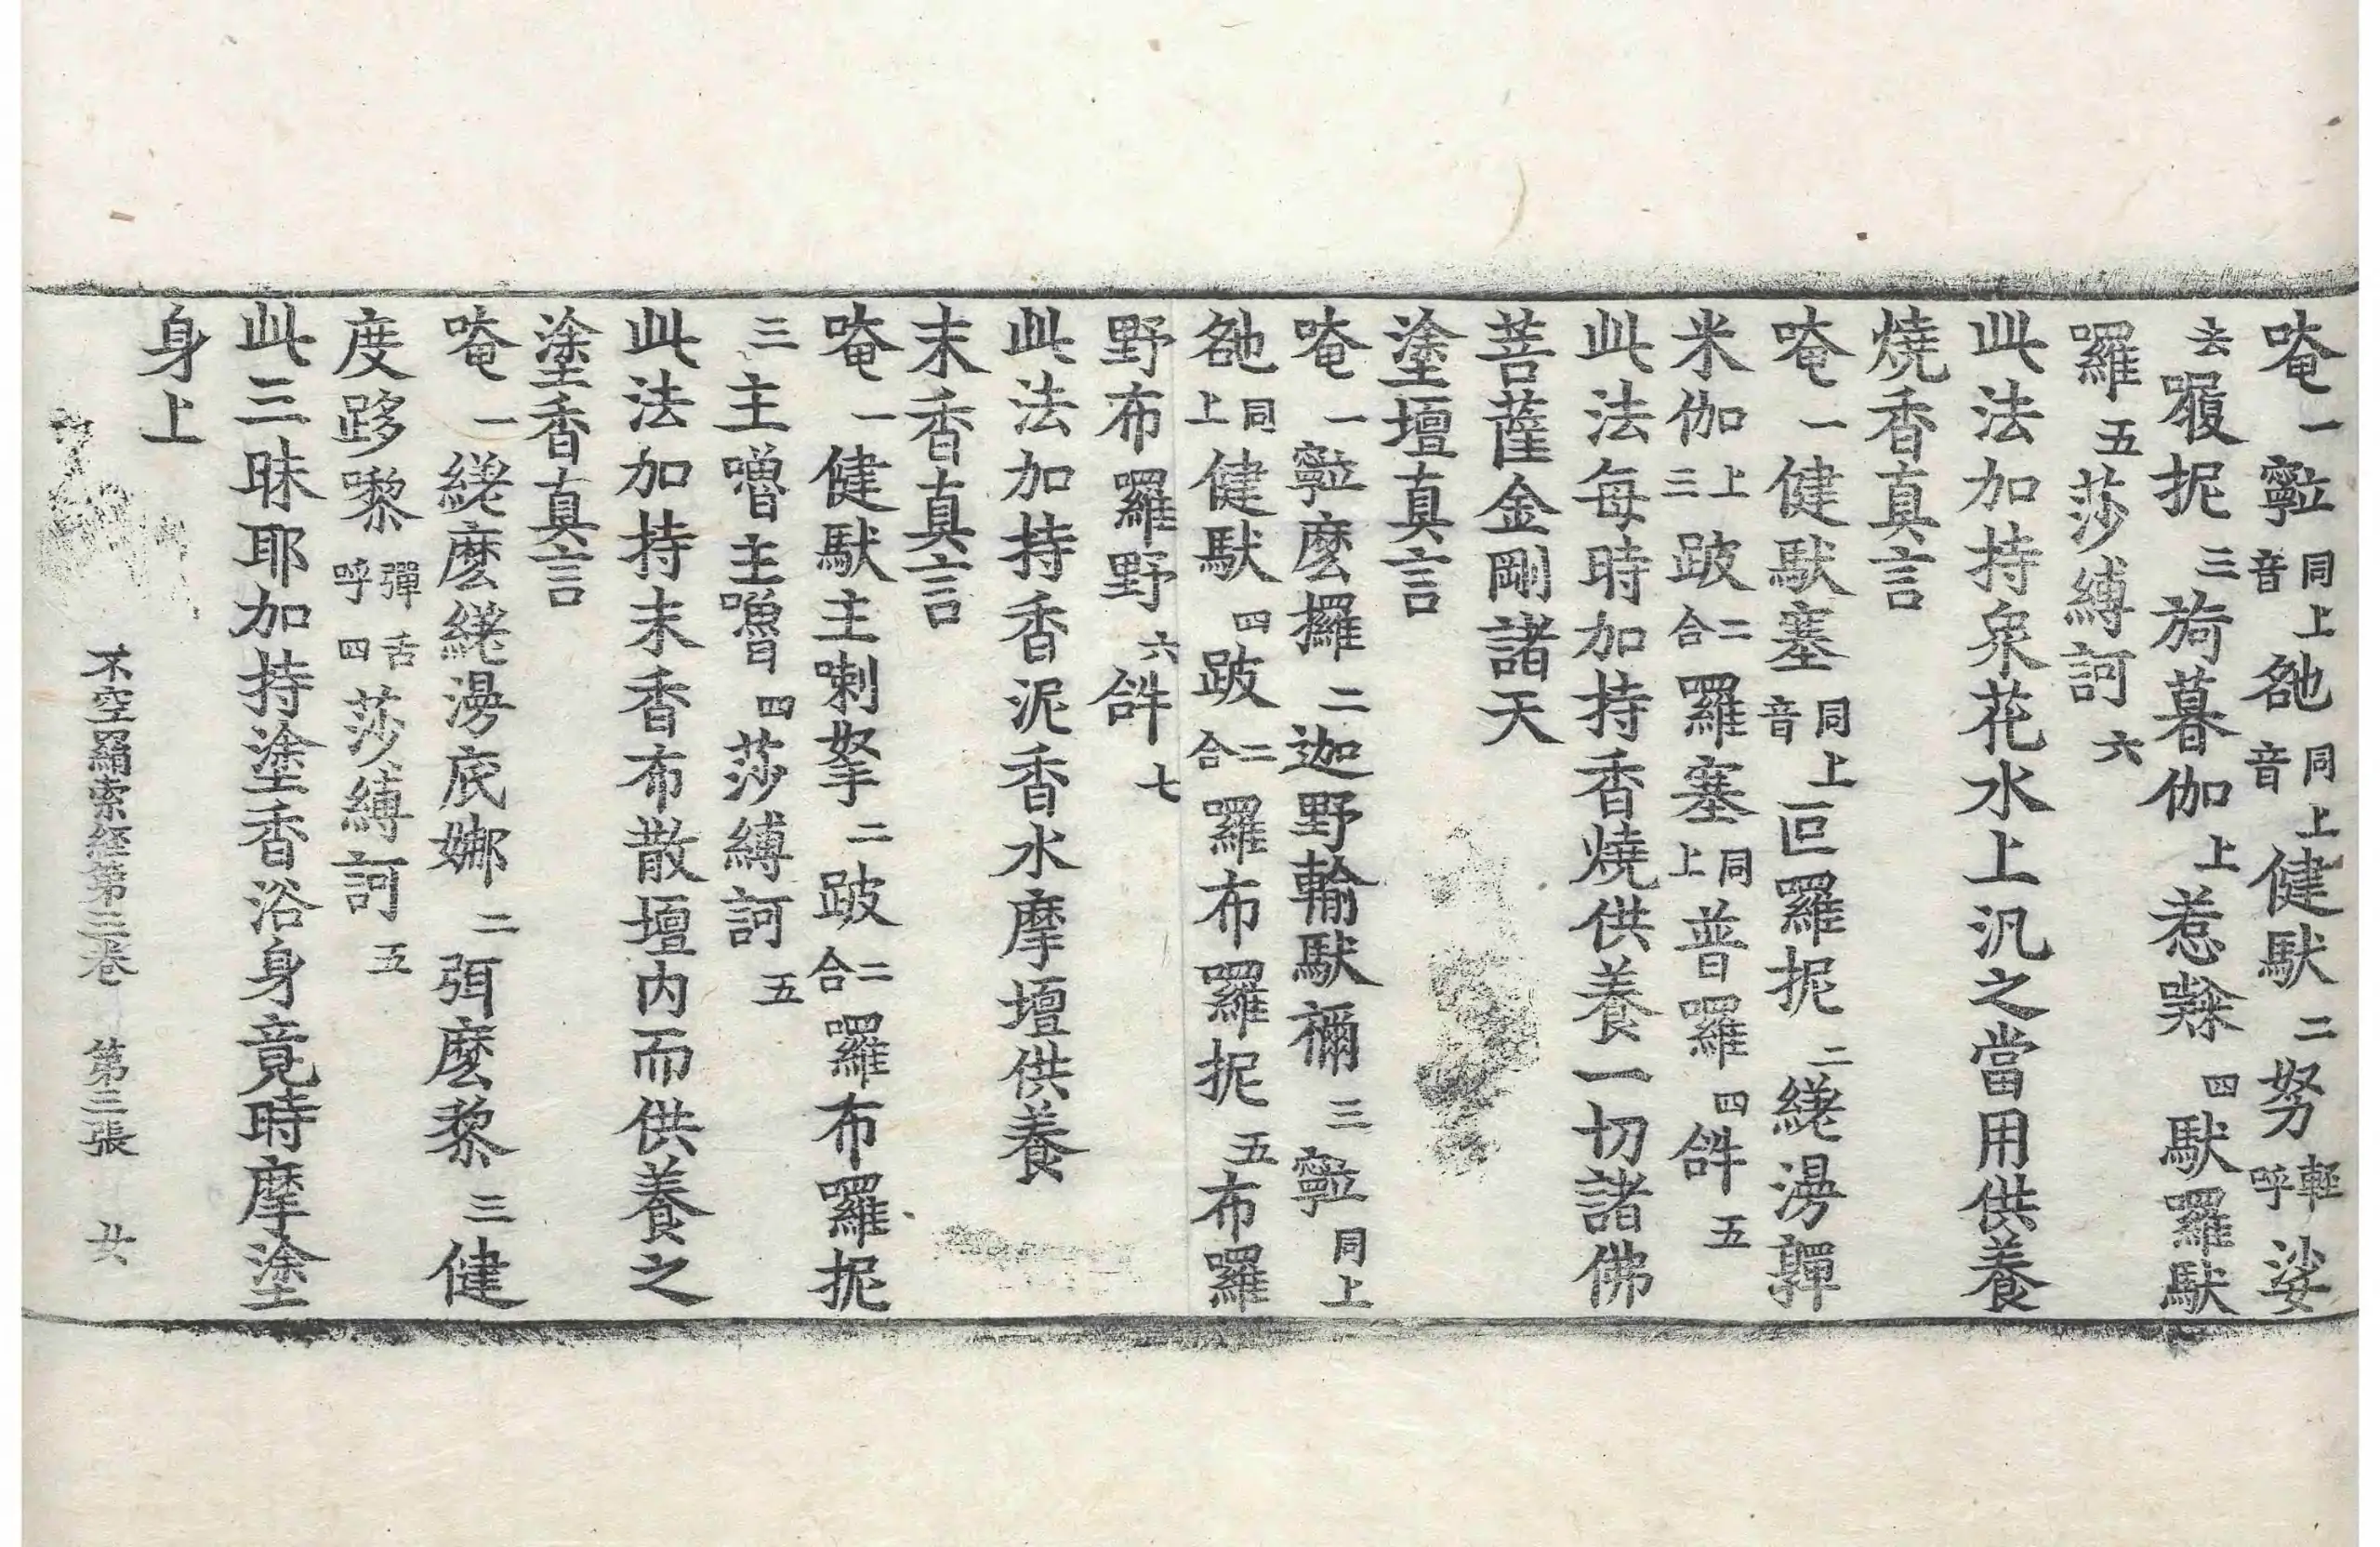 唵一𭋬同上音𠰷同上音健馱二努輕呼娑
去㘑抳三旖暮伽上惹㘑四馱羅馱
囉五莎縛訶六
此法加持衆花水上汎之當用供養
燒香真言
唵一健馱塞同上音叵囉抳二繼漫亸
米伽上三跛二合囉塞同上普羅四𤙖五
此法每時加持香燒供養一切諸佛
菩薩金剛諸天
塗壇真言
唵一麼攞二迦野輸馱禰三同上
同上健馱四跛二合囉布囉抳五布囉
野布囉野六𤙖七
此法加持香泥香水摩壇供養
末香真言
唵一健馱主喇拏二跛二合囉布囉抳
三主嚕主嚕四莎縛訶五
此法加持末香布散壇內而供養之
塗香真言
唵一麼漫底娜二弭麼黎三健
度跢㗚彈舌呼四莎縛訶五
此三昧耶加持塗香浴身竟時摩塗
身上
不空羂索經第三卷 第三張 女